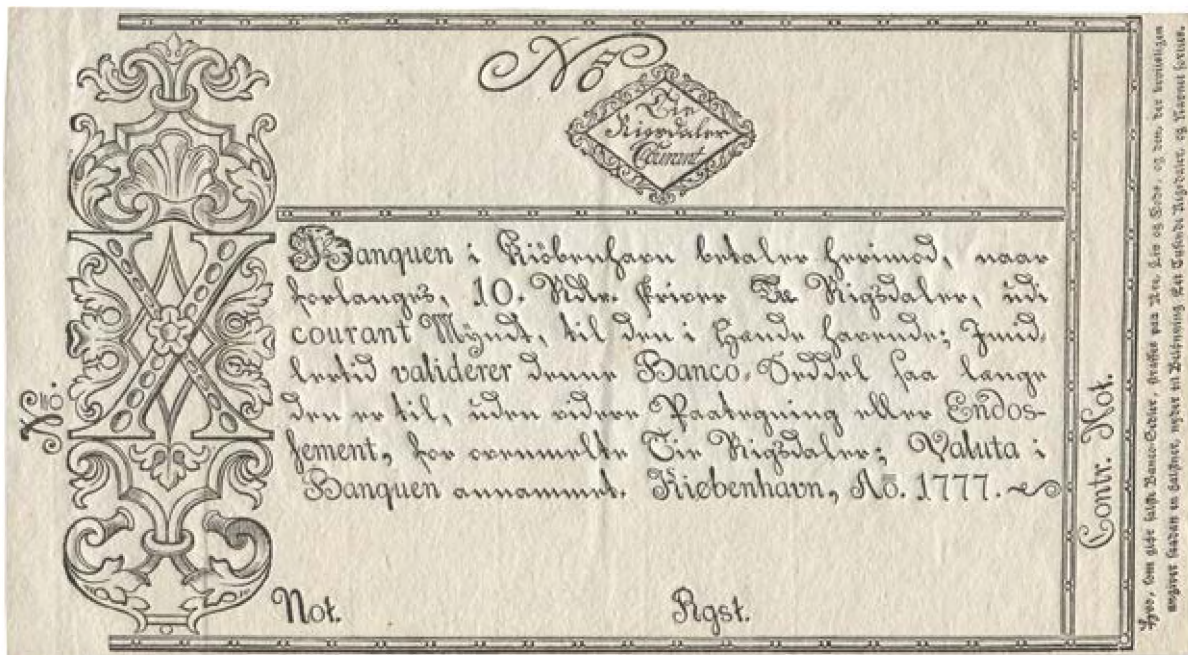 No
Tie
Rigsdaler
Courant
Banquen i Kiöbenhavn betaler herimod, naar
forlanges, 10. Rdlr. skriver Tie Rigsdaler, udi
courant Myndt, til den i Hænde havende; Imid-
lertid validerer denne Banco-Seddel saa længe
den er til, uden videre Paategning eller Endos-
sement, for ovenmeldte Tie Rigsdaler; Valuta i
Banquen annammet. Kiøbenhavn, Ao. 1777.
Not. Rgst.
No.
Contr. Not.
Hvo, som giør falske Banco-Sedler, straffes paa Ære, Liv og Gods, og den, der beviisligen
angiver saadan en Falskner, nyder til Belønning Eet Tusinde Rigsdaler, og Navnet forties.